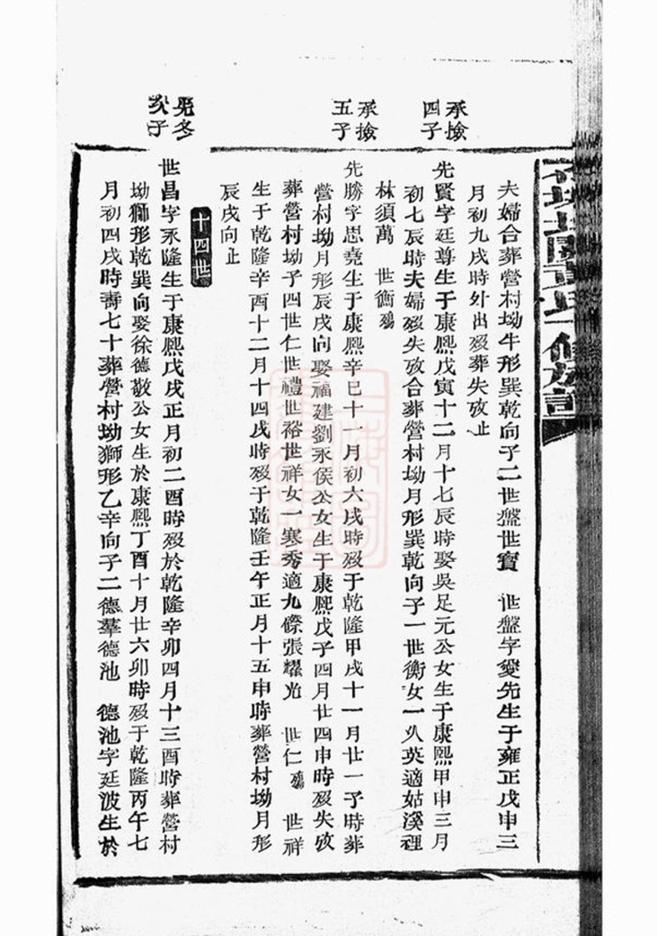 夫婦合葬營村坳牛形巽乾向子二世盤世寶 世盤字愛先生于雍正戊申三
月初九戌時外出歿葬失攷止
承撿
四子
先賢字廷尊生于康熙戊寅十二月十七辰時娶吳足元公女生于康熙甲申三月
初七辰時夫婦歿失攷合葬營村坳月形巽乾向子一世衡女一久英適姑溪裡
林須萬 世衡殤
承撿
五子
先勝字思堯生于康熙辛巳十一月初六戌時歿于乾隆甲戌十一月廿一子時葬
營村坳月形辰戌向娶福建劉永侯公女生于康熙戊子四月廿四申時歿失攷
葬營村坳子四世仁世禮世裕世祥女一寒秀適九際張耀光 世仁殤 世祥
生于乾隆辛酉十二月十四戌時歿于乾隆壬午正月十五申時葬營村坳月形
辰戌向止
十四世
次子
世昌字永隆生于康熙戊戌正月初二酉時歿於乾隆辛卯四月十三酉時葬營村
坳獅形乾巽向娶徐德敬公女生於康熙丁酉十月廿六卯時歿于乾隆丙午七
月初四戌時壽七十葬營村坳獅形乙辛向子二德羣德池 德池字廷波生於